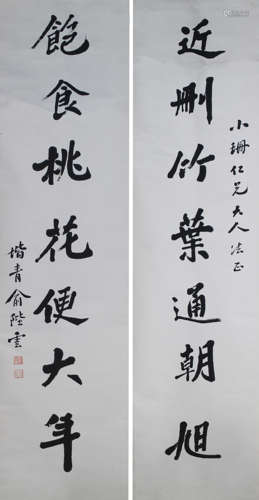 近删竹葉通朝旭
小珊仁兄大人法正
飽食桃花便大年
階青俞陛雲